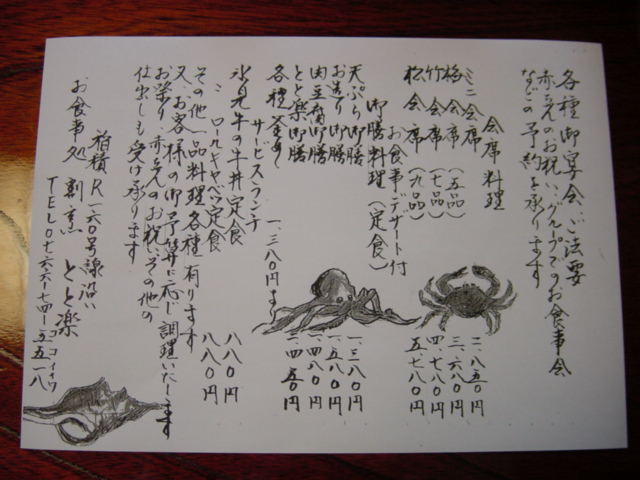 各種御宴会、ご法要
赤ちゃんのお祝い、グループでのお食事会
などの予約を承ります
会席料理
ミニ会席 二、八五〇円
梅会席（五品） 三、六八〇円
竹会席（七品） 四、七八〇円
松会席（九品） 五、七八〇円
お食事、デザート付
御膳料理（定食）
天ぷら御膳 一、三八〇円
お造り御膳 一、五八〇円
肉豆腐御膳 一、四八〇円
とと楽御膳
各種釜めし 一、三八〇円より
サービスランチ
氷見牛の牛丼定食 八八〇円
ロールキャベツ定食 八八〇円
その他一品料理各種有ります
又、お客様の御予算に応じ調理いたします
お祭り、赤ちゃんのお祝、その他の
仕出しも受け承ります
お食事処 割烹 とと楽
稲積R一六〇号線沿い
TEL〇七六六-七四-五五一八
ココイイワ